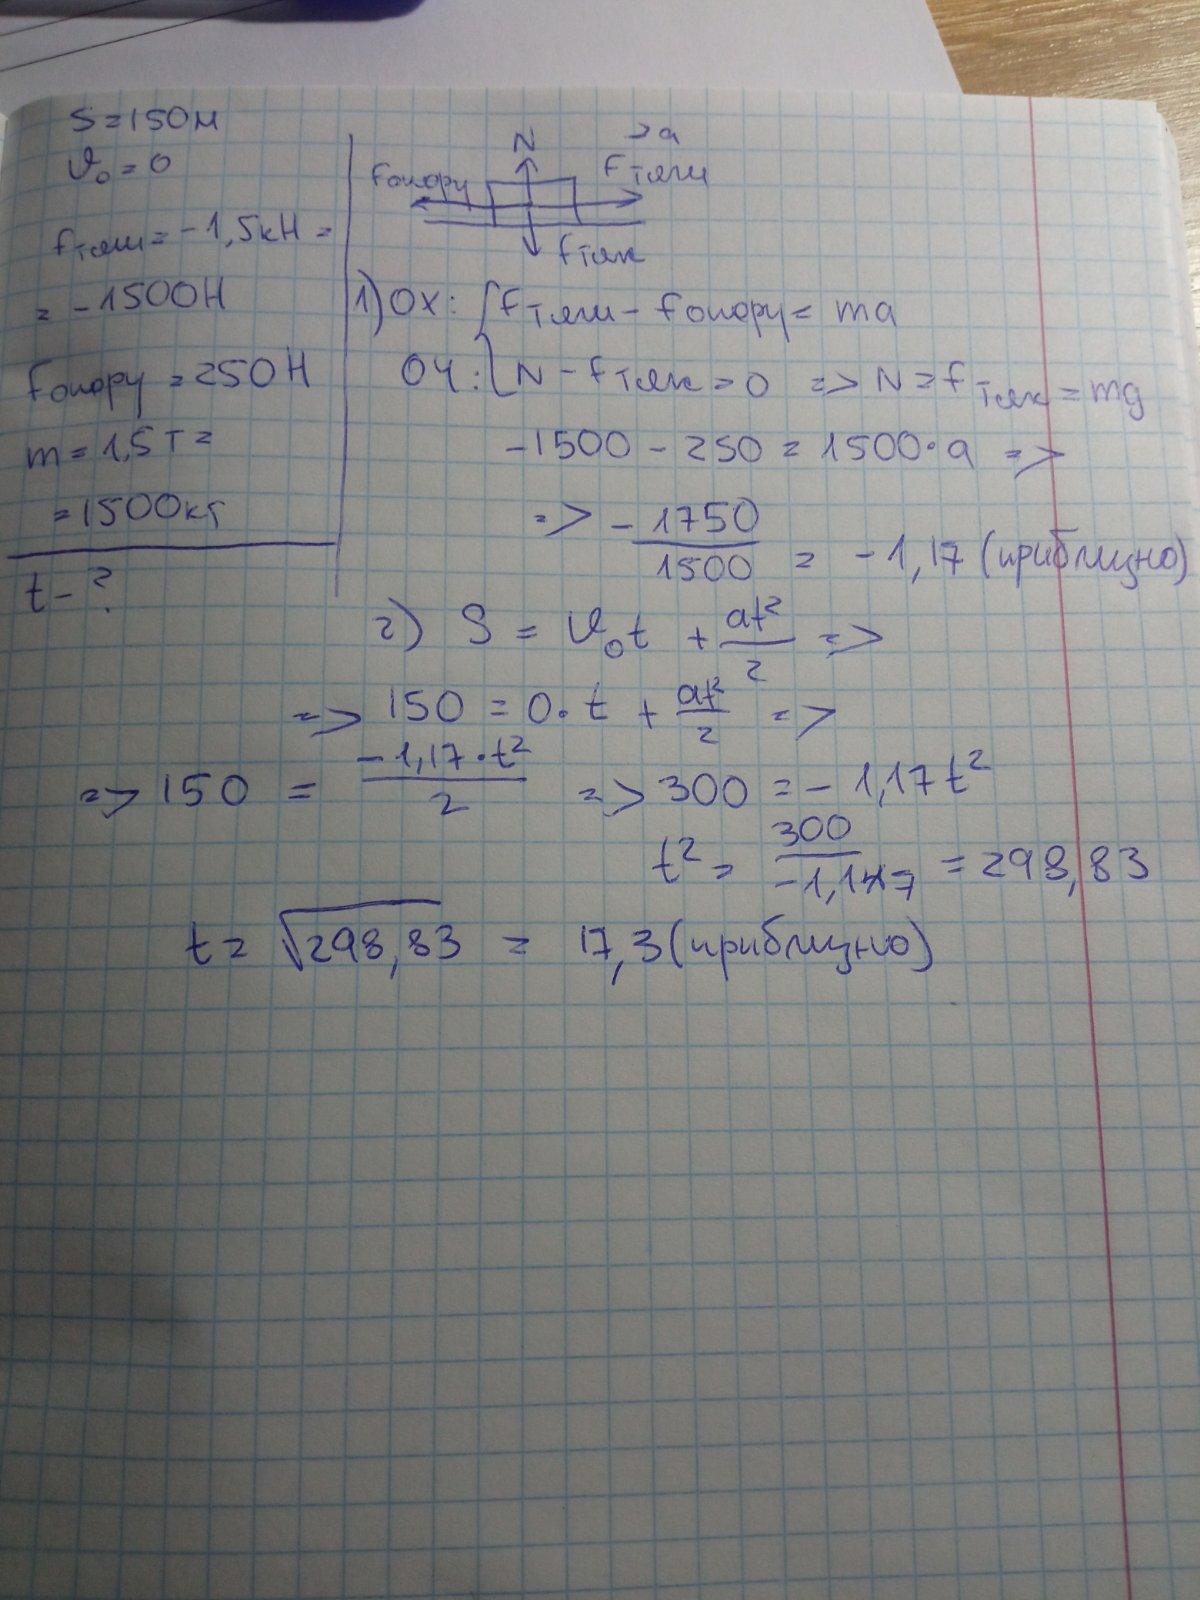 S = 150м
v₀ = 0
Fтяги = -1,5кН =
= -1500Н
Fопору = 250Н
m = 1,5т =
= 1500кг
t - ?
N
→a
Fопору
Fтяги
Fтяж
1) OX: { Fтяги - Fопору = ma
OY: { N - Fтяж = 0 => N = Fтяж = mg
-1500 - 250 = 1500·a =>
=> -1750/1500 = -1,17 (приблизно)
2) S = v₀t + at²/2 =>
=> 150 = 0·t + at²/2 =>
=> 150 = -1,17·t²/2 => 300 = -1,17t²
t² = 300/-1,17 = 298,83
t = √298,83 = 17,3 (приблизно)